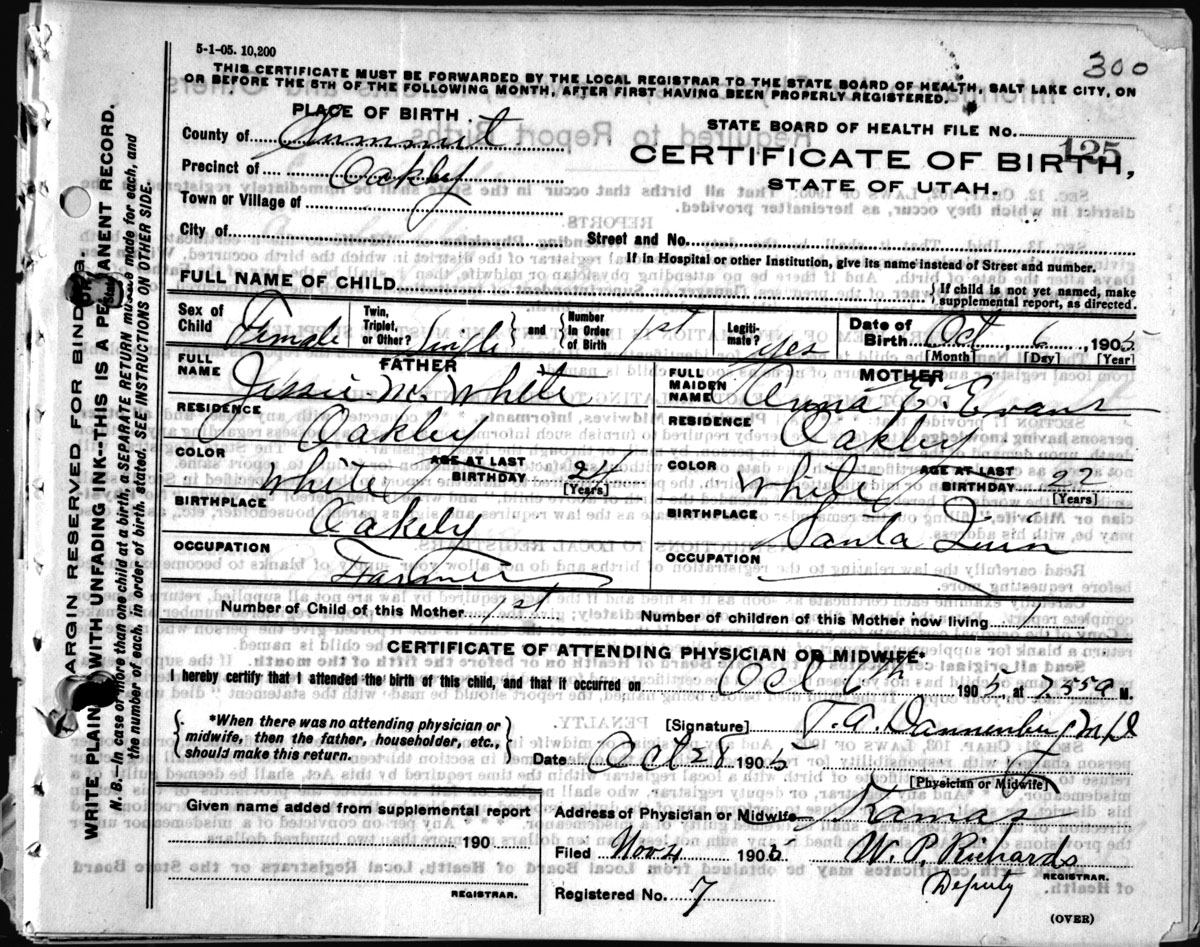 5-1-05. 10,200
300
THIS CERTIFICATE MUST BE FORWARDED BY THE LOCAL REGISTRAR TO THE STATE BOARD OF HEALTH, SALT LAKE CITY, ON
OR BEFORE THE 5TH OF THE FOLLOWING MONTH, AFTER FIRST HAVING BEEN PROPERLY REGISTERED.
PLACE OF BIRTH
STATE BOARD OF HEALTH FILE NO.
125
County of Summit
CERTIFICATE OF BIRTH,
Precinct of Oakley
STATE OF UTAH.
Town or Village of
City of
Street and No.
If in Hospital or other Institution, give its name instead of Street and number.
FULL NAME OF CHILD
If child is not yet named, make
supplemental report, as directed.
Sex of Child Female Twin, Triplet, or Other? Single and Number In Order of Birth 1st Legitimate? yes Date of Birth Oct 6 1905
[Month] [Day] [Year]
FATHER
MOTHER
FULL NAME Jessie M. White
FULL MAIDEN NAME Anna E. Evans
RESIDENCE Oakley
RESIDENCE Oakley
COLOR White AGE AT LAST BIRTHDAY 24 [Years]
COLOR White AGE AT LAST BIRTHDAY 22 [Years]
BIRTHPLACE Oakely
BIRTHPLACE Santa
OCCUPATION Farmer
OCCUPATION
Number of Child of this Mother 1st
Number of children of this Mother now living 1
CERTIFICATE OF ATTENDING PHYSICIAN OR MIDWIFE*
I hereby certify that I attended the birth of this child, and that it occurred on Oct 6th 1905, at 7 55 a M.
*When there was no attending physician or
midwife, then the father, householder, etc.,
should make this return.
[Signature] T. G. Dannenberg M.D
Date Oct 28 1905
[Physician or Midwife]
Given name added from supplemental report
190
REGISTRAR.
Address of Physician or Midwife Kamas
Filed Nov 4 1905
W. P. Richards
Deputy REGISTRAR.
Registered No. 7
(OVER)
MARGIN RESERVED FOR BINDING.
WRITE PLAINLY WITH UNFADING INK--THIS IS A PERMANENT RECORD.
N. B.--In case of more than one child at a birth, a SEPARATE RETURN must be made for each, and
the number of each, in order of birth, stated. SEE INSTRUCTIONS ON OTHER SIDE.